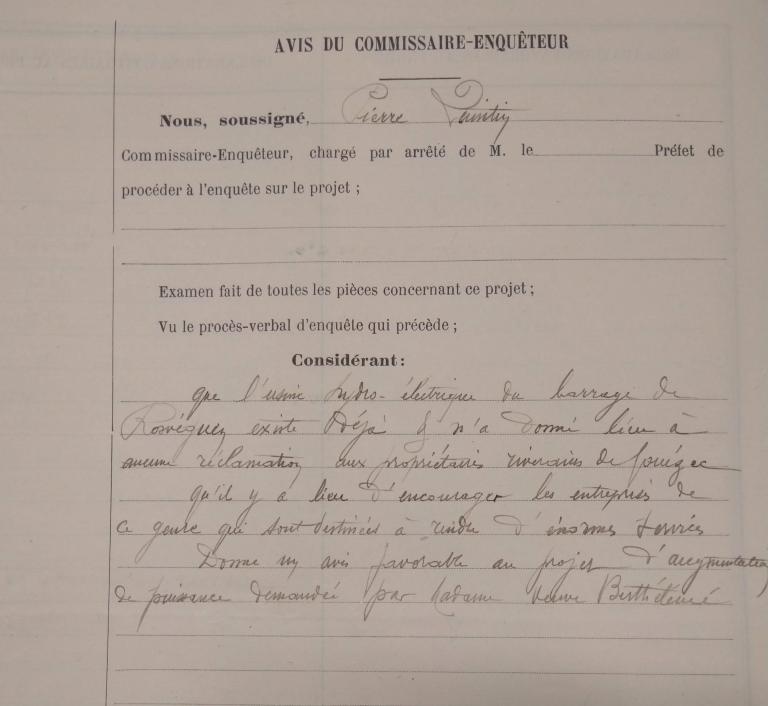 AVIS DU COMMISSAIRE-ENQUÊTEUR
Nous, soussigné, Pierre Quintin
Commissaire-Enquêteur, chargé par arrêté de M. le Préfet de
procéder à l'enquête sur le projet ;
Examen fait de toutes les pièces concernant ce projet ;
Vu le procès-verbal d'enquête qui précède ;
Considérant :
que l'usine hydro-électrique du barrage de
Rosvéguen existe Déjà & n'a donné lieu à
aucune réclamation aux propriétaires riverains de Gouézec
qu'il y a lieu d'encourager les entreprises de
ce genre qui sont destinées à rendre d'énormes services
Donne un avis favorable au projet d'augmentation
de puissance demandée par Madame Veuve